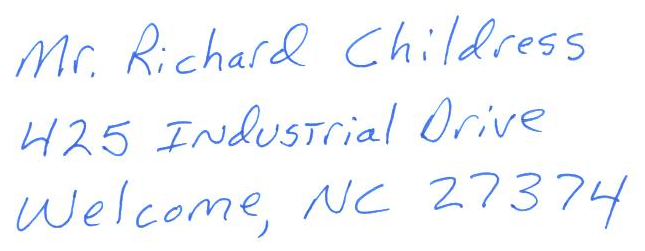 Mr. Richard Childress
425 Industrial Drive
Welcome, NC 27374